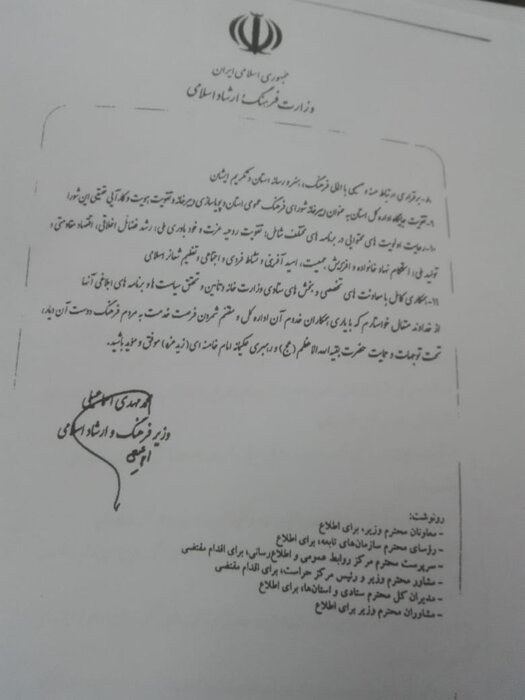 جمهوری اسلامی ایران
وزارت فرهنگ و ارشاد اسلامی
۸- برقراری ارتباط حسنه و صمیمی با اهالی فرهنگ، هنر و رسانه استان و تکریم ایشان
۹- تقویت جایگاه اداره کل استان به عنوان دبیرخانه شورای فرهنگ عمومی استان و پویاسازی دبیرخانه و تقویت هویت و کارآیی حقیقی این شورا
۱۰- رعایت اولویت های محتوایی در برنامه های مختلف شامل: تقویت روحیه عزت و خودباوری ملی، رشد فضائل اخلاقی، اقتصاد مقاومتی و
تولید ملی، استحکام نهاد خانواده و افزایش جمعیت، امید آفرینی و نشاط فردی و اجتماعی و تعظیم شعائر اسلامی
۱۱- همکاری کامل با معاونت های تخصصی و بخش های ستادی وزارت خانه و تأمین و تحقق سیاست ها و برنامه های ابلاغی آنها
از خداوند متعال خواستارم که با یاری همکاران خدوم آن اداره کل و مغتنم شمردن فرصت خدمت به مردم فرهنگ دوست آن دیار،
تحت توجهات و عنایت حضرت بقیه الله الاعظم (عج) و رهبری حکیمانه امام خامنه ای (زید عزه) موفق و مؤید باشید.
محمد مهدی اسماعیلی
وزیر فرهنگ و ارشاد اسلامی
رونوشت:
- معاونان محترم وزیر، برای اطلاع
- رؤسای محترم سازمان‌های تابعه، برای اطلاع
- سرپرست محترم مرکز روابط عمومی و اطلاع‌رسانی، برای اقدام مقتضی
- مشاور محترم وزیر و رئیس مرکز حراست، برای اقدام مقتضی
- مدیران کل محترم ستادی و استان‌ها، برای اطلاع
- مشاوران محترم وزیر برای اطلاع